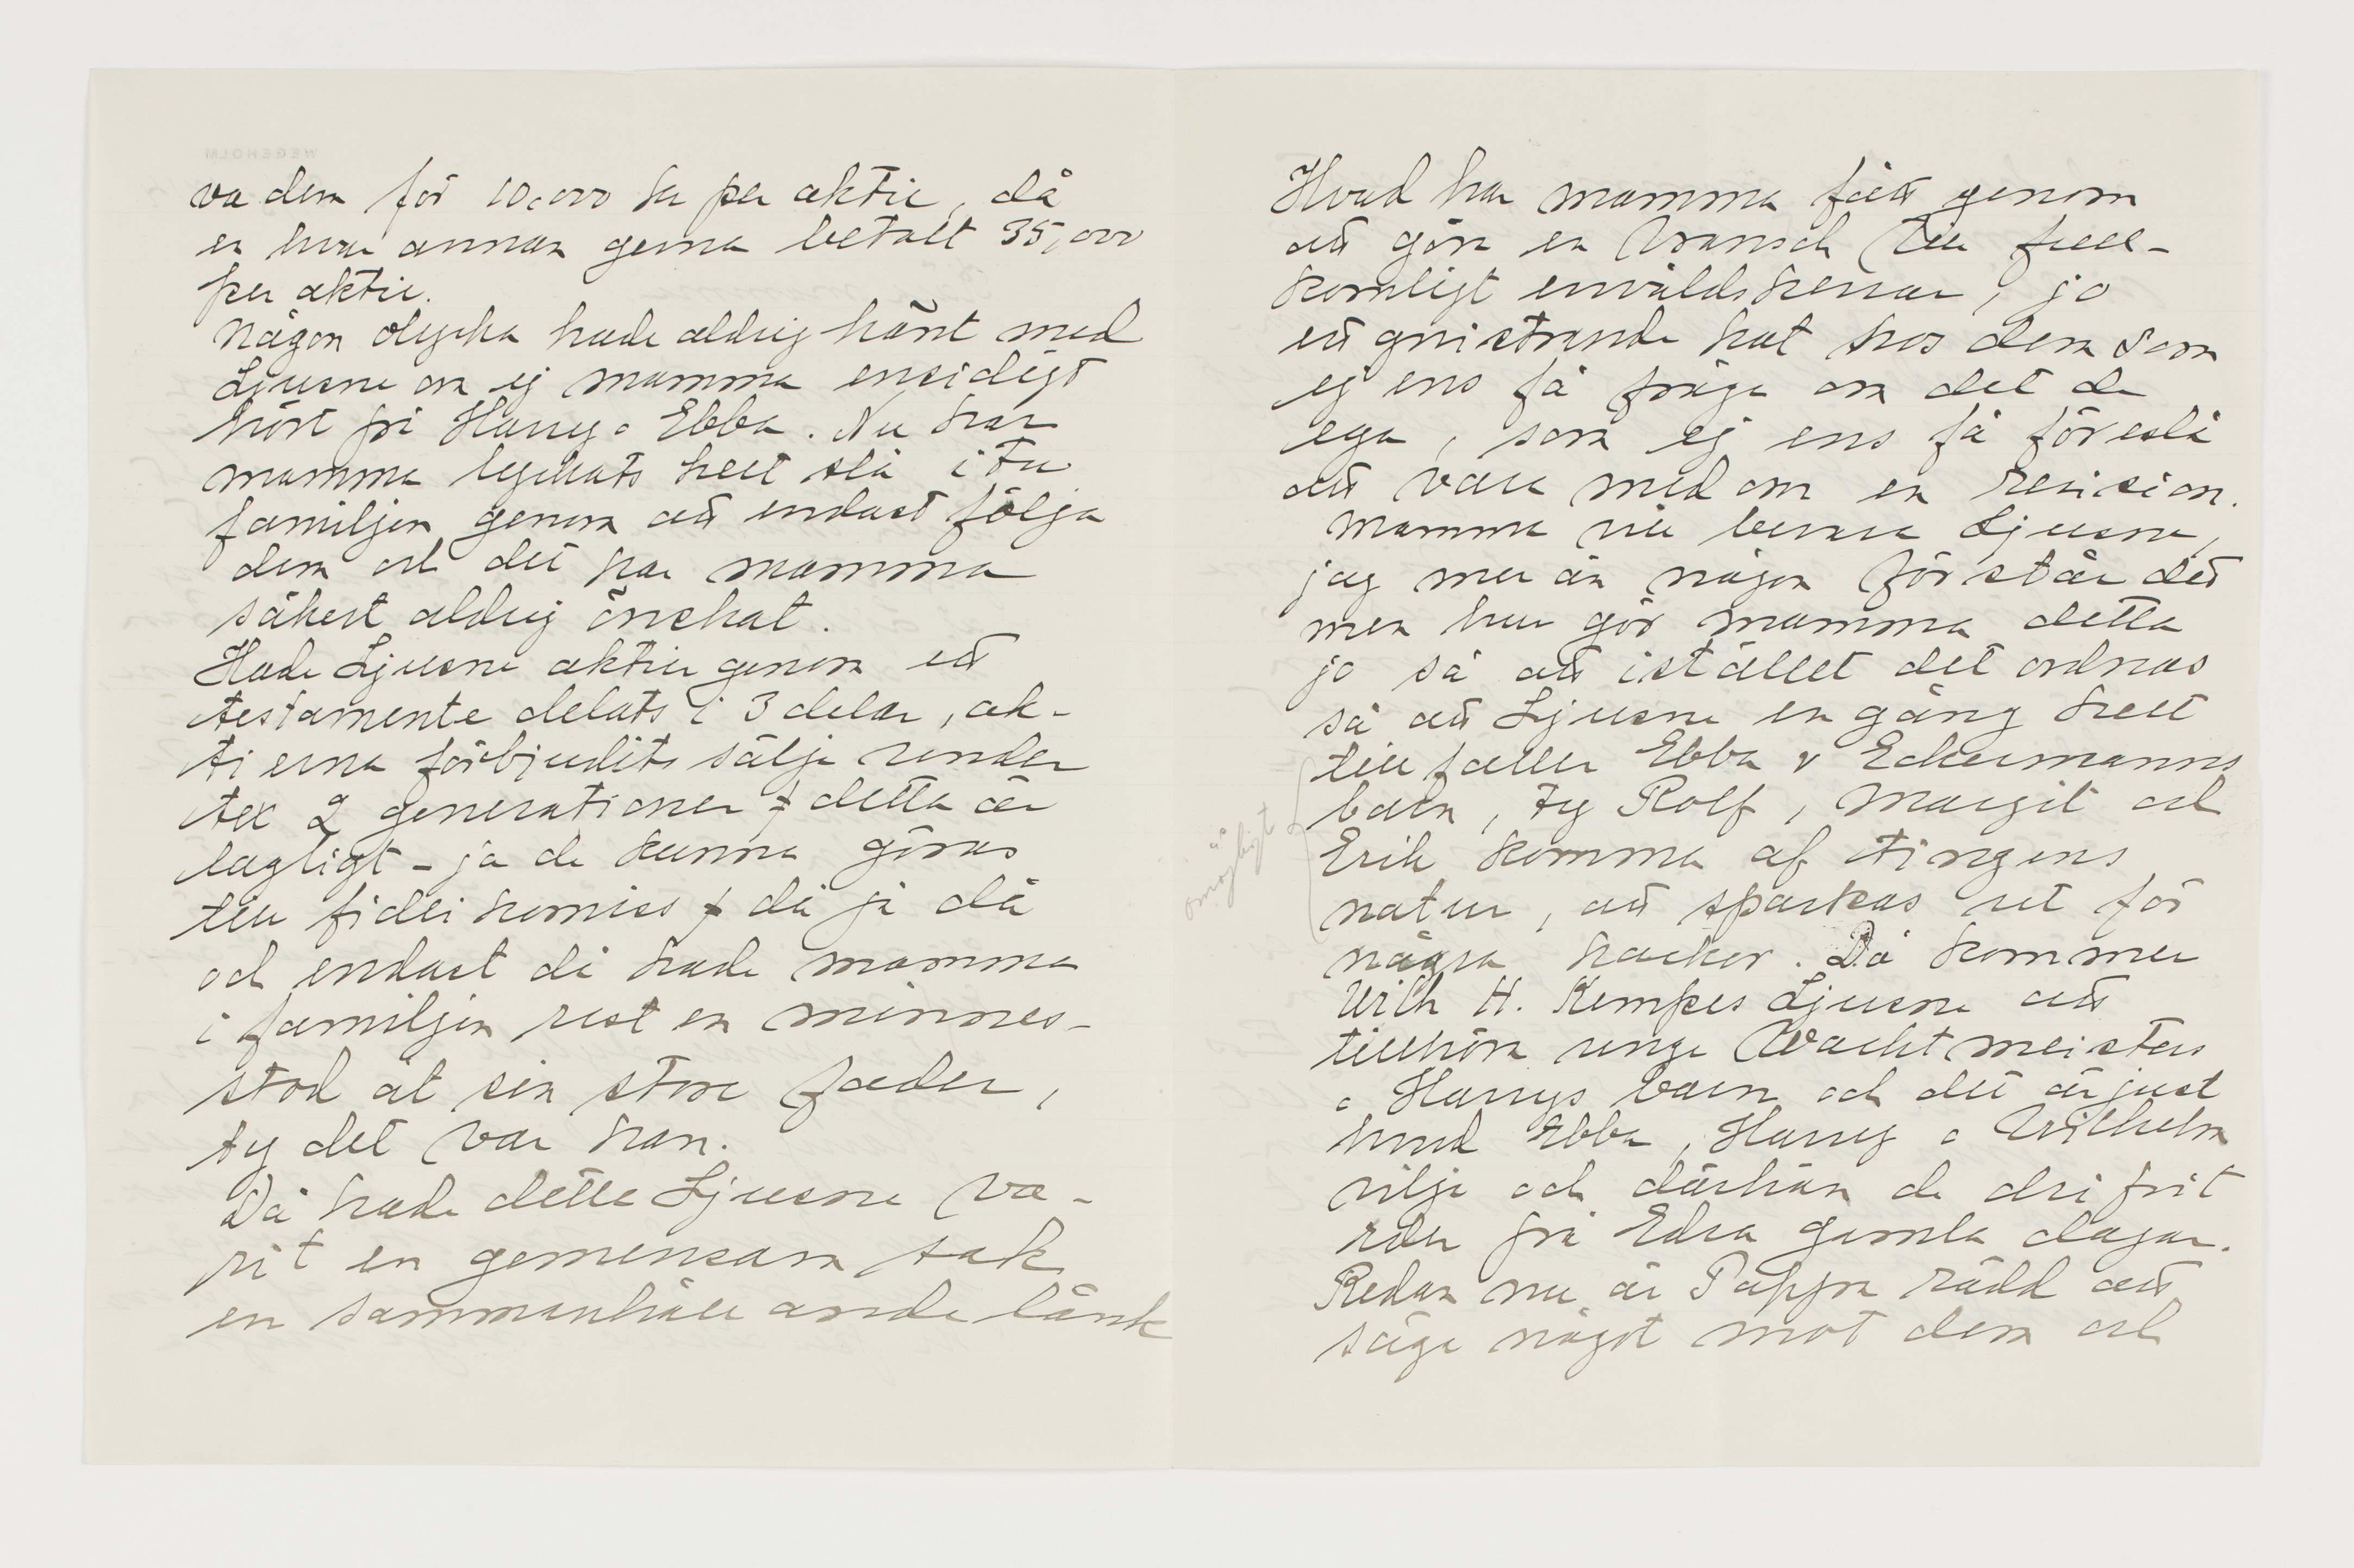 WEGEHOLM
va dem för 10,000 kr per aktie, då
en hvar annan gerna betalt 35,000
per aktie.
Någon olycka hade aldrig hänt med
Ljusne om ej mamma ensidigt
hört på Harry o Ebba. Nu har
mamma lyckats helt slå itu
familjen genom att endast följa
dem och det har mamma
säkert aldrig önskat.
Hade Ljusne aktier genom ett
testamente delats i 3 delar, ak-
tierna förbjudits sälja under
tex 2 generationer detta är
lagligt - ja de kunna göras
till fideikomiss då ja då
och endast då hade mamma
i familjen rest en minnes-
stod åt sin store fader,
ty det var han.
Då hade detta Ljusne va-
rit en gemensam sak
en sammanhållande länk
Hvad har mamma fått genom
att göra en Wansch till full-
komligt envåldsherrar, jo
ett gnistrande hat hos dem som
ej ens få fråga om det de
ega, som ej ens få föreslå
att vara med om en revision.
Mamma vill bevara Ljusne,
jag mer än någon förstår det
men hur gör mamma detta
jo så att istället det ordnas
så att Ljusne en gång helt
tillfaller Ebba v Eckermanns
barn, ty Rolf, Margit och
Erik komma af tingens
natur, att sparkas ut för
några kackor. Då kommer
Wilh H. Kempes Ljusne att
tillhöra unge Wachtmeisters
o Harrys barn och det är just
hvad Ebba, Harry o Wilhelm
vilja och därhän de drifvit
eder på Edra gamla dagar.
Redan nu är Pappa rädd att
säga något mot dem och
omöjligt